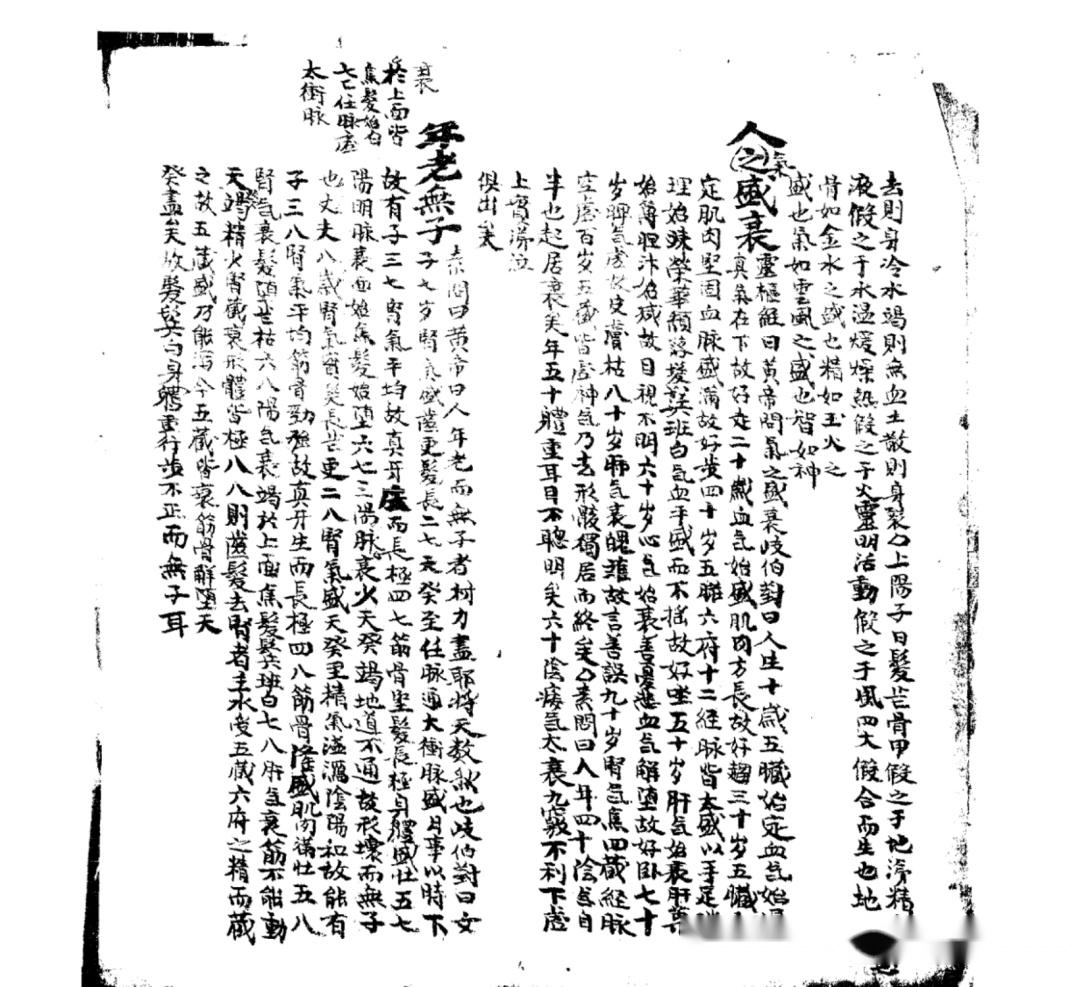 去則身冷水竭則無血土散則身裂〇上陽子曰髮芒骨甲假之于地涕精
液假之于水溫煖燥熱假之于火靈明活動假之于風四大假合而生也地
骨如金水之盛也精如玉火之
盛也氣如雲風之盛也智如神
人之氣盛衰 靈樞經曰黃帝問氣之盛衰岐伯對曰人生十歲五臟始定血氣始
真氣在下故好走二十歲血氣始盛肌肉方長故好趨三十岁五臟
定肌肉堅固血脉盛滿故好步四十岁五臟六府十二経脉皆太盛以手足
理始踈榮華頹落髮班白氣血平盛而不搖故好坐五十岁肝气始衰肝葉
始薄胆汁始減故目視不明六十岁心气始衰善憂悲血气解堕故好卧七十
岁脾气虛故皮膚枯八十岁肺气衰魄離故言善誤九十岁腎气焦四藏経脉
空虛百岁五藏皆虛神气乃去形骸獨居而終矣〇素問曰人年四十陰气自
半也起居衰矣年五十體重耳目不聰明矣六十陰痿气太衰九竅不利下虛
上實涕泣
俱出矣
年老無子 素問曰黃帝曰人年老而無子者材力盡耶將天数然也岐伯對曰女
子七岁腎气盛齒更髮長二七天癸至任脉通大衝脉盛月事以時下
故有子三七腎气平均故真牙生而長極四七筋骨坚髮長極身體盛壮五七
陽明脉衰面始焦髮始堕六七三陽脉衰火天癸竭地道不通故形壞而無子
也丈夫八歲腎气實髮長芒更二八腎氣盛天癸至精氣溢瀉陰陽和故能有
子三八腎氣平均筋骨勁強故真牙生而長極四八筋骨隆盛肌肉滿壮五八
腎气衰髮堕芒枯六八陽气衰竭於上面焦髮鬓班白七八肝气衰筋不能動
天癸竭精火腎藏衰形體皆極八八則齒髮去腎者主水受五藏六府之精而藏
之故五藏盛乃能瀉今五藏皆衰筋骨解堕天
癸盡矣故髮鬓白身軆重行步不正而無子耳
衰
於上面皆
焦髮始白
七七任脉虛
太衝脉